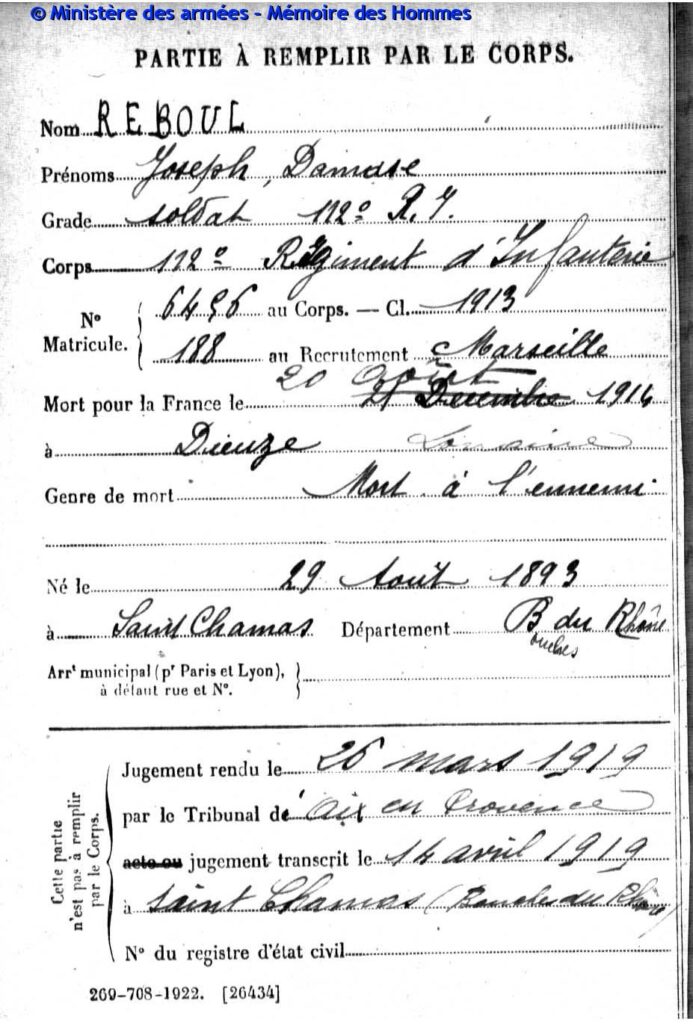 © Ministère des armées - Mémoire des Hommes
PARTIE À REMPLIR PAR LE CORPS.
Nom REBOUL
Prénoms Joseph, Damase
Grade soldat 112° R.I.
Corps 112° Régiment d'Infanterie
N° Matricule. { 6456 au Corps. — Cl. 1913
188 au Recrutement Marseille
20 août
Mort pour la France le 21 Decembre 1914
à Dieuze Lorraine
Genre de mort Mort à l'ennemi
Né le 29 Août 1893
à Saint Chamas Département B du Rhône
ouches
Arrt municipal (pr Paris et Lyon),
à défaut rue et N°.
Cette partie n'est pas à remplir par le Corps.
Jugement rendu le 26 mars 1919
par le Tribunal de Aix en Provence
acte ou jugement transcrit le 14 avril 1919
à Saint Chamas (Bouches du Rhône)
N° du registre d'état civil
269-708-1922. [26434]